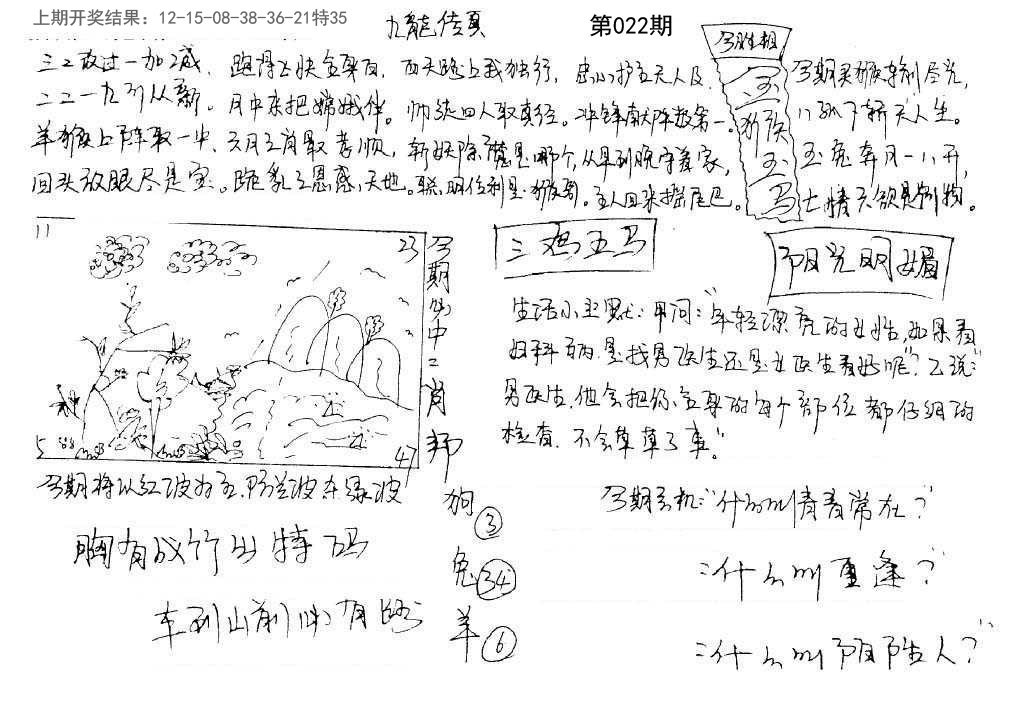 上期开奖结果：12-15-08-38-36-21特35
九龍传真
第022期
三二放过一加减，跑得飞快金算面，西天路上我独行，忠心护主天人及
二二一九列从新。月中亲把嫦娥伴。帅徒四人取真经。冲锋献阵数第一。
羊猴上阵取一中，六月三肖最孝顺，斩妖除魔是哪个，从早到晚守着家，
回头放眼尽是宝。跪乳之恩感天地。聪明伶利是猴哥。主人回来摇尾巴。
今期生相
玉猴玉马
今期灵猴转利尽光，
八孤下轿天人生。
玉兔奔月一八开，
七情六欲是别物。
11
23
5
47
今期必中二肖邦
三鸡五马
阳光明媚
生活小幽默：甲问："年轻漂亮的女性，如果看
妇科病，是找男医生还是女医生看好呢？"乙说："
男医生，他会把你全身的每个部位都仔细的
检查，不会草草了事。"
今期将以红波为主，防兰波本绿波
胸有成竹出特码
车到山前必有路
狗③
兔34
羊⑥
今期玄机："什么叫青春常在？"
："什么叫重逢？"
："什么叫阴阳人？"